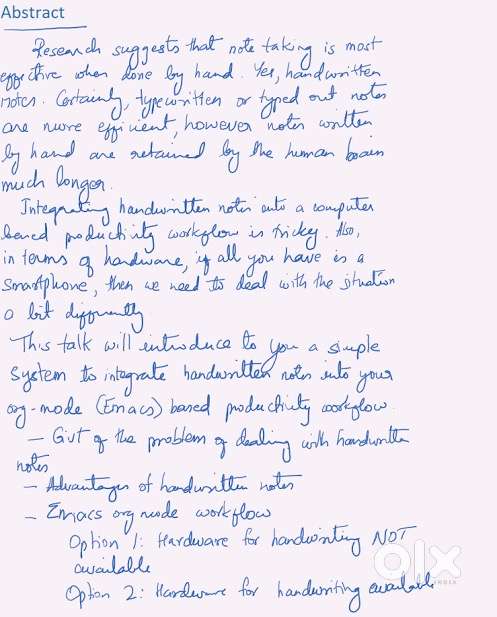 Abstract
Research suggests that note taking is most
effective when done by hand. Yes, handwritten
notes. Certainly, typewritten or typed out notes
are more efficient, however notes written
by hand are retained by the human brain
much longer.
Integrating handwritten notes into a computer
based productivity workflow is tricky. Also,
in terms of hardware, if all you have is a
smartphone, then we need to deal with the situation
a bit differently
This talk will introduce to you a simple
system to integrate handwritten notes into your
org-mode (Emacs) based productivity workflow.
- Gist of the problem of dealing with handwritten
notes
- Advantages of handwritten notes
- Emacs org mode workflow
Option 1: Hardware for handwriting NOT
available
Option 2: Hardware for handwriting available
OLX
INDIA